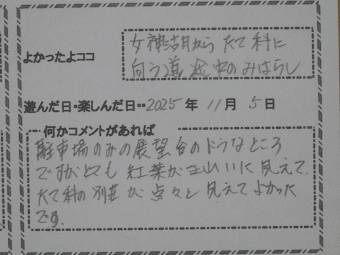 女神湖から たて科に
よかったよココ
向う道 途中のみはらし
遊んだ日・楽しんだ日‥2025 年 11 月 5 日
何かコメントがあれば
駐車場のみの展望台のようなところ
ですがとても 紅葉がきれいに見えて
たて科の別荘が 点々と 見えてよかった
です。